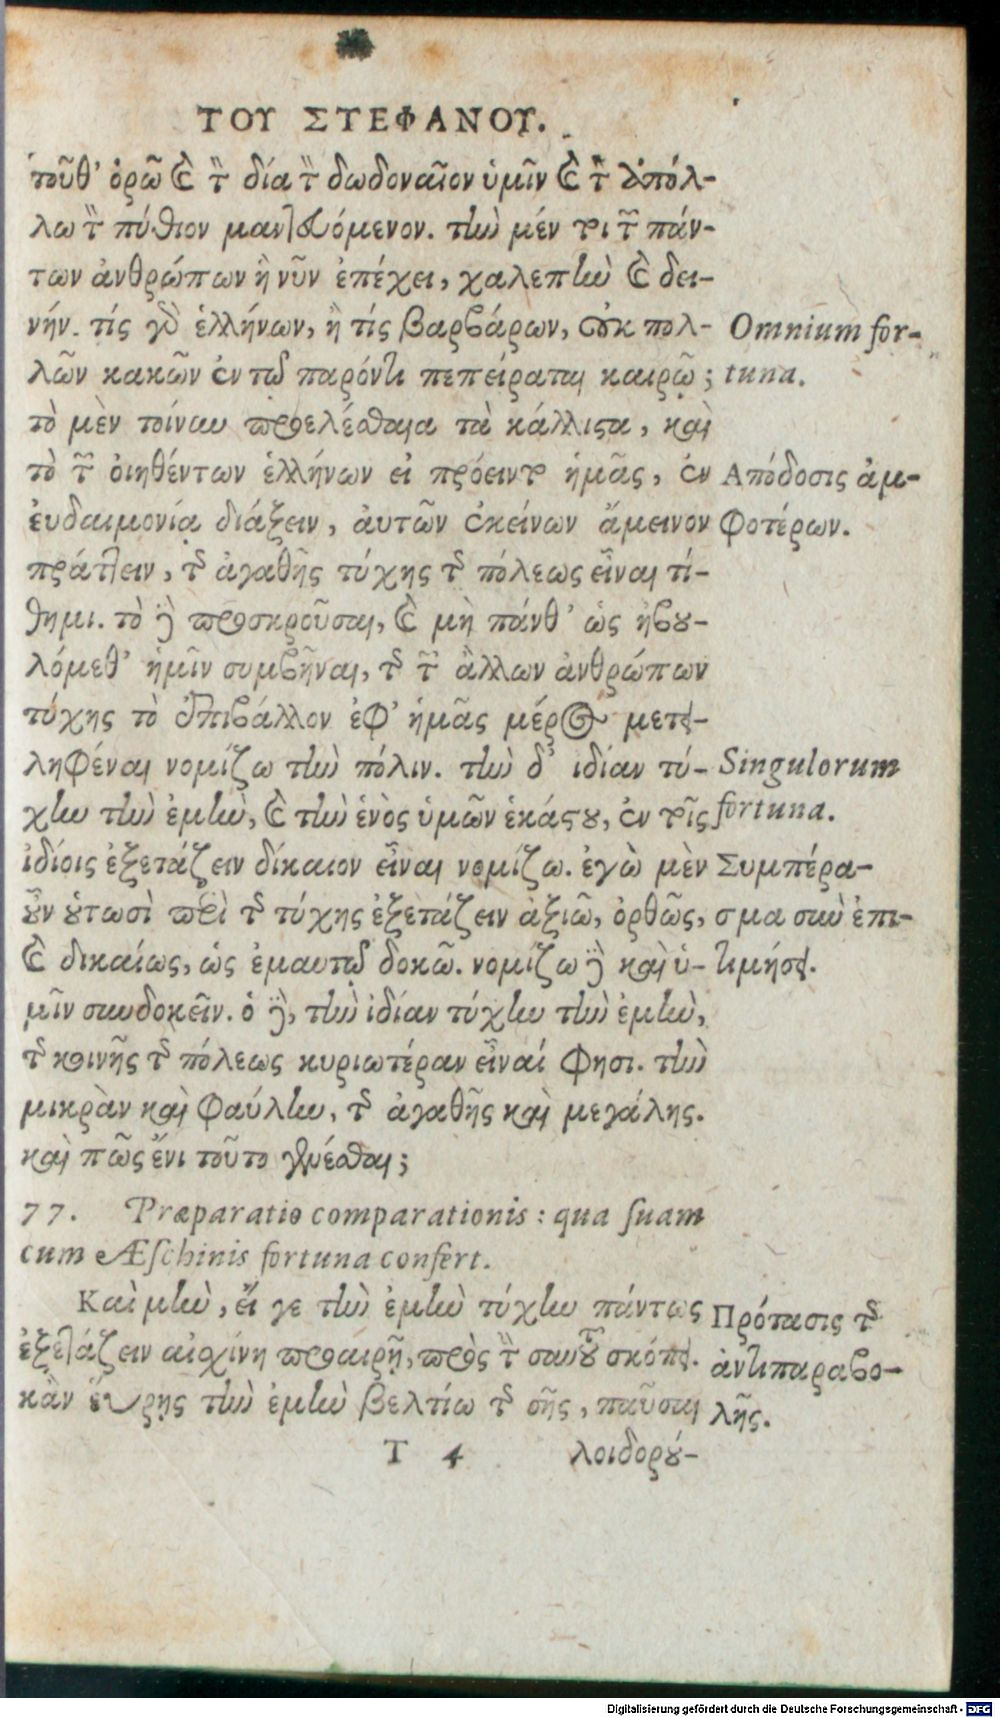 ΤΟΥ ΣΤΕΦΑΝΟΥ.
τοῦθ' ὁρῶ καὶ τὸν δία τὸν δωδοναῖον ὑμῖν καὶ τὸν ἀπόλ-
λω τὸν πύθιον μαντευόμενον. τὴν μέν τοι τῶν πάν-
των ἀνθρώπων ἣ νῦν ἐπέχει, χαλεπὴν καὶ δει-
νήν. τίς γὰρ ἑλλήνων, ἢ τίς βαρβάρων, οὐκ πολ-
λῶν κακῶν ἐν τῷ παρόντι πεπείραται καιρῷ;
Omnium for-
tuna.
τὸ μὲν τοίνυν προελέσθαι τὰ κάλλιστα, καὶ
τὸ τῶν οἰηθέντων ἑλλήνων εἰ πρόειντο ἡμᾶς, ἐν
εὐδαιμονίᾳ διάξειν, αὐτῶν ἐκείνων ἄμεινον
Απόδοσις ἀμ-
φοτέρων.
πράττειν, τῆς ἀγαθῆς τύχης τῆς πόλεως εἶναι τί-
θημι. τὸ δὲ προσκροῦσαι, καὶ μὴ πάνθ' ὡς ἠβου-
λόμεθ' ἡμῖν συμβῆναι, τῆς τῶν ἄλλων ἀνθρώπων
τύχης τὸ ἐπιβάλλον ἐφ' ἡμᾶς μέρος μετει-
ληφέναι νομίζω τὴν πόλιν. τὴν δ' ἰδίαν τύ-
χην τὴν ἐμὴν, καὶ τὴν ἑνὸς ὑμῶν ἑκάστου, ἐν τοῖς
Singulorum
fortuna.
ἰδίοις ἐξετάζειν δίκαιον εἶναι νομίζω. ἐγὼ μὲν
οὖν οὑτωσὶ περὶ τῆς τύχης ἐξετάζειν ἀξιῶ, ὀρθῶς,
καὶ δικαίως, ὡς ἐμαυτῷ δοκῶ. νομίζω δὲ καὶ ὑ-
Συμπέρα-
σμα σὺν ἐπι-
τιμήσει.
μῖν συνδοκεῖν. ὁ δὲ, τὴν ἰδίαν τύχην τὴν ἐμὴν,
τῆς κοινῆς τῆς πόλεως κυριωτέραν εἶναί φησι. τὴν
μικρὰν καὶ φαύλην, τῆς ἀγαθῆς καὶ μεγάλης.
καὶ πῶς ἔνι τοῦτο γενέσθαι;
77. Præparatio comparationis: qua ſuam
cum Æſchinis fortuna confert.
Καὶ μὴν, εἴ γε τὴν ἐμὴν τύχην πάντως
ἐξετάζειν αἰσχίνη προαιρῇ, πρὸς τὴν σαυτοῦ σκόπει.
κἂν εὕρῃς τὴν ἐμὴν βελτίω τῆς σῆς, παῦσαι
Πρότασις τῆς
ἀντιπαραβο-
λῆς.
T 4 λοιδορού-
Digitalisierung gefördert durch die Deutsche Forschungsgemeinschaft - DFG